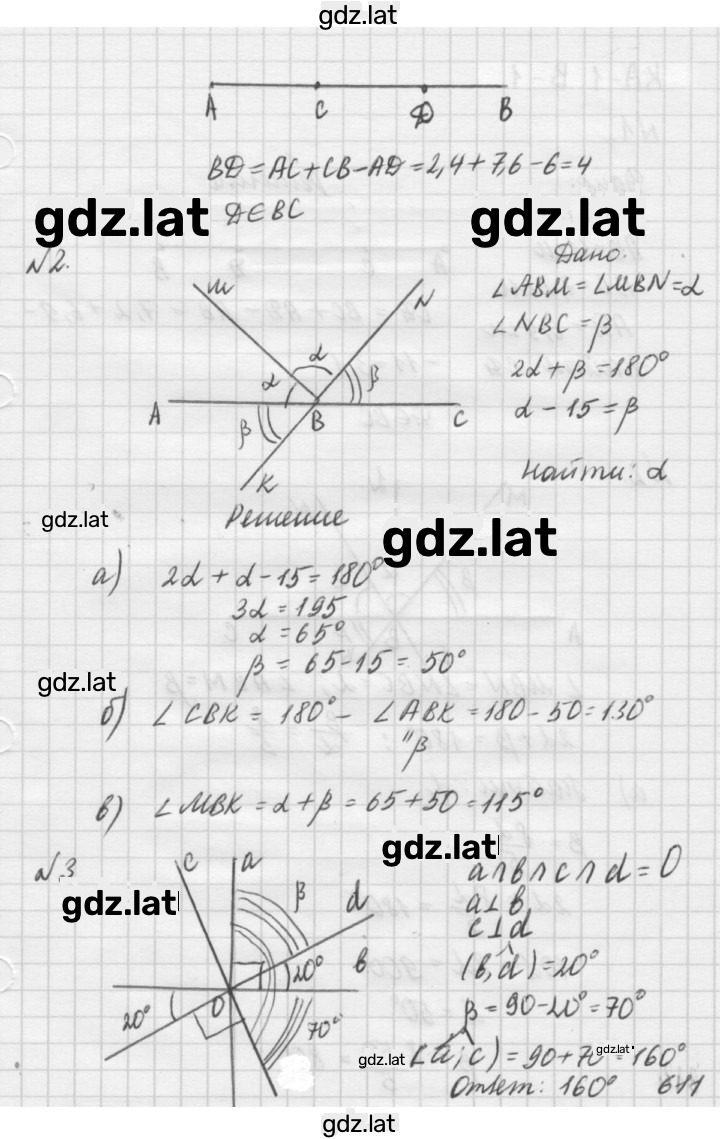 gdz.lat
A C D B
BD = AC + CB - AD = 2,4 + 7,6 - 6 = 4
gdz.lat
D ∈ BC
gdz.lat
№2.
Дано:
M N
∠ABM = ∠MBN = α
∠NBC = β
α α β
2α + β = 180°
A β B C
α - 15 = β
K
Найти: α
gdz.lat
Решение
gdz.lat
а) 2α + α - 15 = 180°
3α = 195
α = 65°
β = 65 - 15 = 50°
gdz.lat
б) ∠CBK = 180° - ∠ABK = 180 - 50 = 130°
"β
в) ∠MBK = α + β = 65 + 50 = 115°
gdz.lat
№3
c a β d
a ∩ b ∩ c ∩ d = O
gdz.lat
a ⊥ b
c ⊥ d
20° b
(b, d) = 20°
20° O 70°
β = 90 - 20° = 70°
gdz.lat
∠(a; c) = 90 + 70 = 160°
gdz.lat
Ответ: 160° 611
gdz.lat